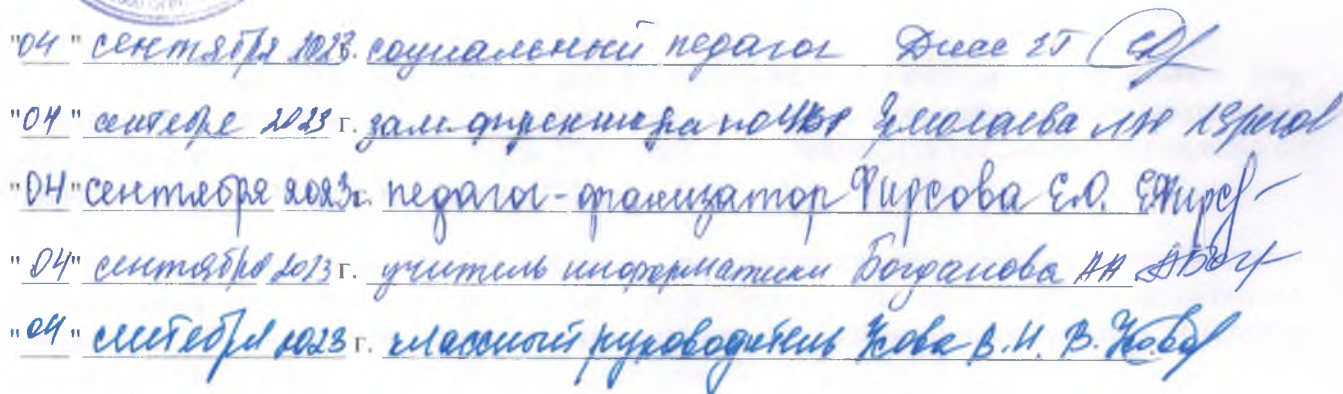 "04" сентября 2023г. социальный педагог
"04" сентября 2023 г. зам. директора по УВР Ермолаева
"04" сентября 2023г. педагог-организатор Фирсова Е.О. ЕФирсf
"04" сентября 2023 г. учитель информатики Богданова АА
"04" сентября 2023 г. классный руководитель В.И. В.